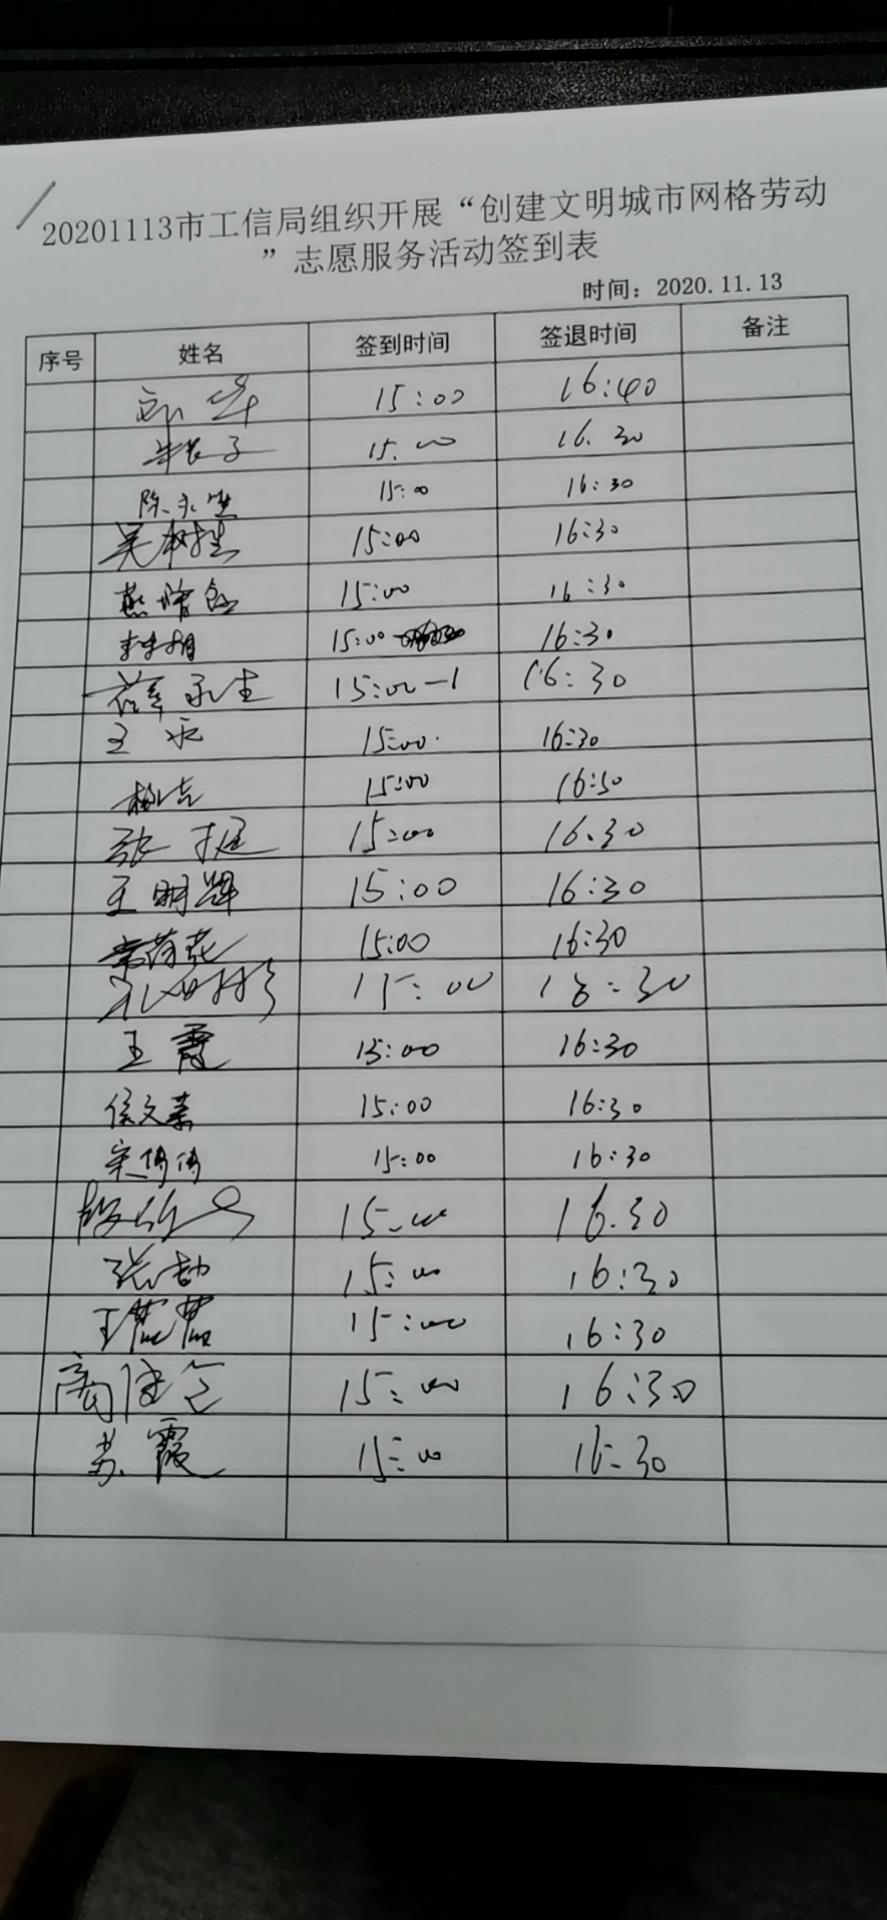 20201113市工信局组织开展“创建文明城市网格劳动
”志愿服务活动签到表
时间：2020.11.13
序号 姓名 签到时间 签退时间 备注
15:00 16:40
15.00 16.30
陈永生 15:00 16:30
吴树 15:00 16:30
燕 15:00 16:30
15:00 16:30
薛永生 15:00-1 16:30
王永 15:00. 16:30
杨洁 15:00 16:30
张挺 15:00 16.30
王明辉 15:00 16:30
常荷花 15:00 16:30
15:00 16:30
王霞 15:00 16:30
侯文 15:00 16:30
宋倩倩 15:00 16:30
15.00 16.30
张勃 15:00 16:30
王 15:00 16:30
商 15:00 16:30
苏霞 15:00 16:30